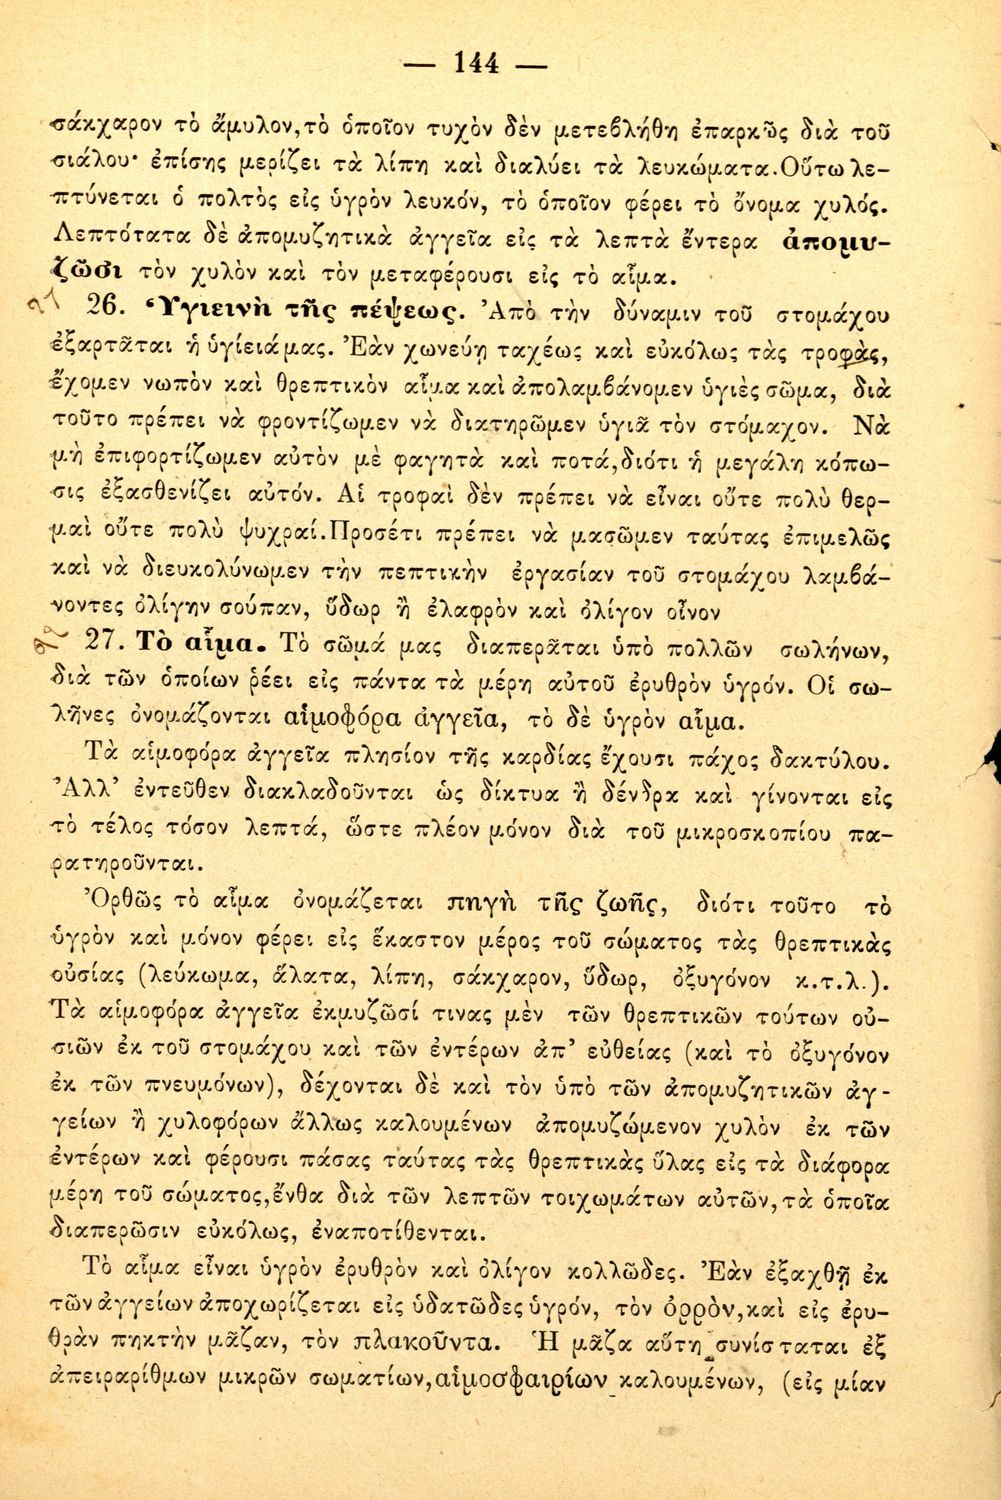 — 144 —
σάκχαρον τὸ ἄμυλον, τὸ ὁποῖον τυχὸν δὲν μετεβλήθη ἐπαρκῶς διὰ τοῦ
σιάλου· ἐπίσης μερίζει τὰ λίπη καὶ διαλύει τὰ λευκώματα. Οὕτω λε-
πτύνεται ὁ πολτὸς εἰς ὑγρὸν λευκόν, τὸ ὁποῖον φέρει τὸ ὄνομα χυλός.
Λεπτότατα δὲ ἀπομυζητικὰ ἀγγεῖα εἰς τὰ λεπτὰ ἔντερα ἀπομυ-
ζῶσι τὸν χυλὸν καὶ τὸν μεταφέρουσι εἰς τὸ αἷμα.
26. Ὑγιεινὴ τῆς πέψεως. Ἀπὸ τὴν δύναμιν τοῦ στομάχου
ἐξαρτᾶται ἡ ὑγίειά μας. Ἐὰν χωνεύῃ ταχέως καὶ εὐκόλως τὰς τροφὰς,
ἔχομεν νωπὸν καὶ θρεπτικὸν αἷμα καὶ ἀπολαμβάνομεν ὑγιὲς σῶμα, διὰ
τοῦτο πρέπει νὰ φροντίζωμεν νὰ διατηρῶμεν ὑγιᾶ τὸν στόμαχον. Νὰ
μὴ ἐπιφορτίζωμεν αὐτὸν μὲ φαγητὰ καὶ ποτά, διότι ἡ μεγάλη κόπω-
σις ἐξασθενίζει αὐτόν. Αἱ τροφαὶ δὲν πρέπει νὰ εἶναι οὔτε πολὺ θερ-
μαὶ οὔτε πολὺ ψυχραί. Προσέτι πρέπει νὰ μασῶμεν ταύτας ἐπιμελῶς
καὶ νὰ διευκολύνωμεν τὴν πεπτικὴν ἐργασίαν τοῦ στομάχου λαμβά-
νοντες ὀλίγην σούπαν, ὕδωρ ἢ ἐλαφρὸν καὶ ὀλίγον οἶνον
27. Τὸ αἷμα. Τὸ σῶμά μας διαπερᾶται ὑπὸ πολλῶν σωλήνων,
διὰ τῶν ὁποίων ῥέει εἰς πάντα τὰ μέρη αὐτοῦ ἐρυθρὸν ὑγρόν. Οἱ σω-
λῆνες ὀνομάζονται αἱμοφόρα ἀγγεῖα, τὸ δὲ ὑγρὸν αἷμα.
Τὰ αἱμοφόρα ἀγγεῖα πλησίον τῆς καρδίας ἔχουσι πάχος δακτύλου.
Ἀλλ’ ἐντεῦθεν διακλαδοῦνται ὡς δίκτυα ἢ δένδρα καὶ γίνονται εἰς
τὸ τέλος τόσον λεπτά, ὥστε πλέον μόνον διὰ τοῦ μικροσκοπίου πα-
ρατηροῦνται.
Ὀρθῶς τὸ αἷμα ὀνομάζεται πηγὴ τῆς ζωῆς, διότι τοῦτο τὸ
ὑγρὸν καὶ μόνον φέρει εἰς ἕκαστον μέρος τοῦ σώματος τὰς θρεπτικὰς
οὐσίας (λεύκωμα, ἅλατα, λίπη, σάκχαρον, ὕδωρ, ὀξυγόνον κ.τ.λ.).
Τὰ αἱμοφόρα ἀγγεῖα ἐκμυζῶσί τινας μὲν τῶν θρεπτικῶν τούτων οὐ-
σιῶν ἐκ τοῦ στομάχου καὶ τῶν ἐντέρων ἀπ’ εὐθείας (καὶ τὸ ὀξυγόνον
ἐκ τῶν πνευμόνων), δέχονται δὲ καὶ τὸν ὑπὸ τῶν ἀπομυζητικῶν ἀγ-
γείων ἢ χυλοφόρων ἄλλως καλουμένων ἀπομυζώμενον χυλὸν ἐκ τῶν
ἐντέρων καὶ φέρουσι πάσας ταύτας τὰς θρεπτικὰς ὕλας εἰς τὰ διάφορα
μέρη τοῦ σώματος, ἔνθα διὰ τῶν λεπτῶν τοιχωμάτων αὐτῶν, τὰ ὁποῖα
διαπερῶσιν εὐκόλως, ἐναποτίθενται.
Τὸ αἷμα εἶναι ὑγρὸν ἐρυθρὸν καὶ ὀλίγον κολλῶδες. Ἐὰν ἐξαχθῇ ἐκ
τῶν ἀγγείων ἀποχωρίζεται εἰς ὑδατῶδες ὑγρόν, τὸν ὀρρὸν, καὶ εἰς ἐρυ-
θρὰν πηκτὴν μᾶζαν, τὸν πλακοῦντα. Ἡ μᾶζα αὕτη συνίσταται ἐξ
ἀπειραρίθμων μικρῶν σωματίων, αἱμοσφαιρίων καλουμένων, (εἰς μίαν